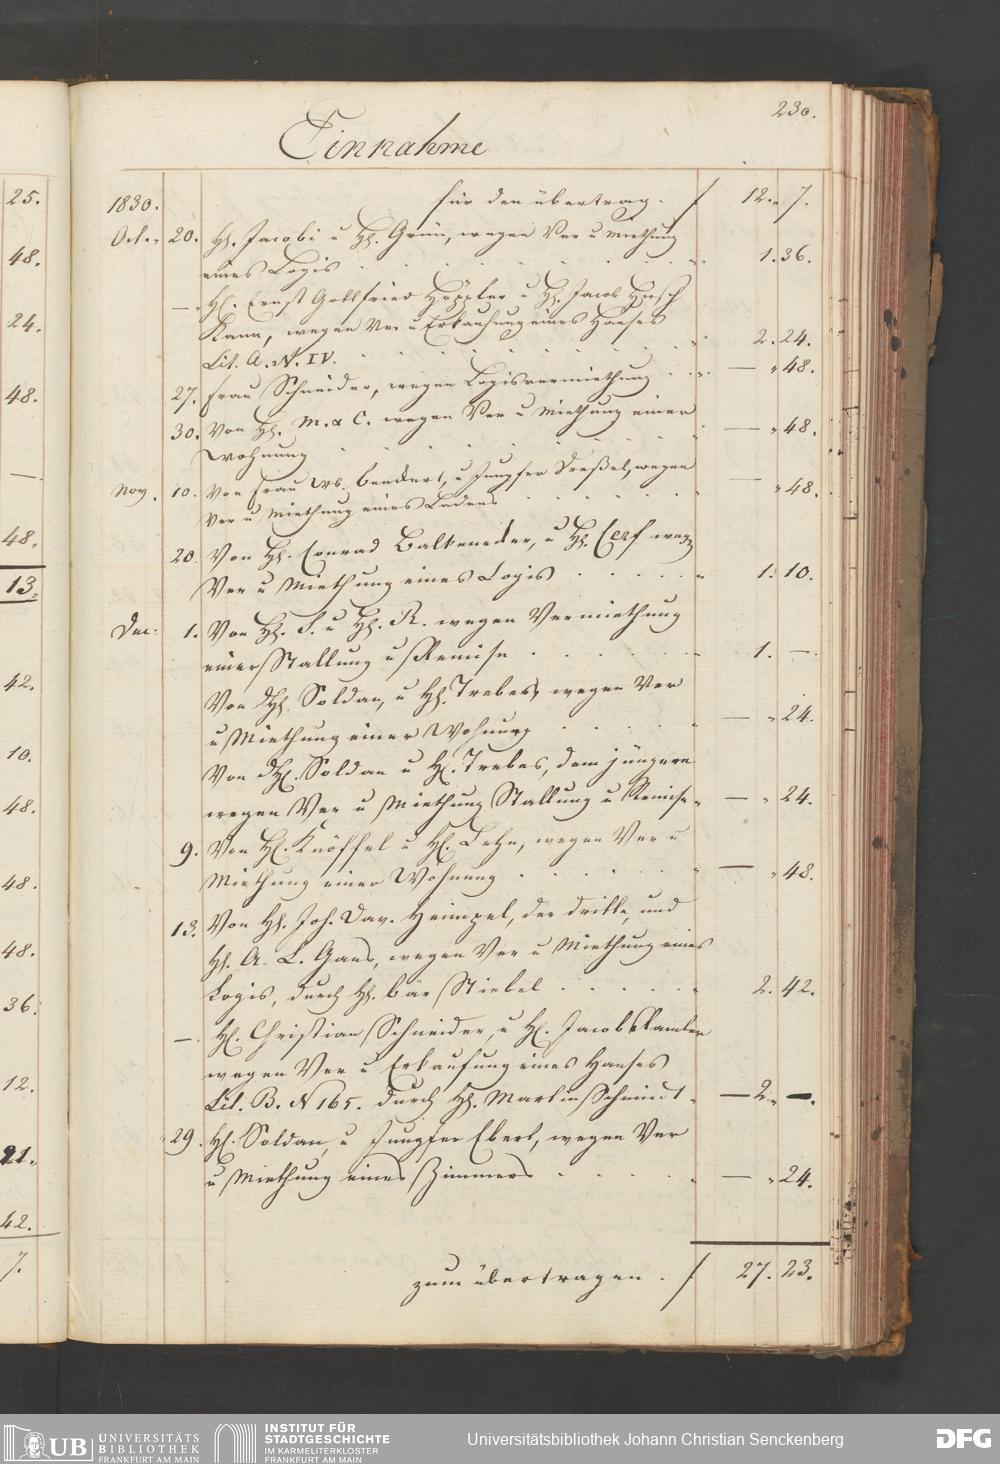 230.
Einnahme
1830. für den übertrag. f 12. 7.
Oct. 20. H. Jacobi u H. Grün, wegen Ver u Miethung
eines Logis 1. 36.
— H. Ernst Gottfried Höppler u H. Jacob Hirsch
Kann, wegen Ver u Erkaufung eines Hauses
Lit. A. N. IV. 2. 24.
27. Frau Schneider, wegen Logisvermiethung — 48.
30. Von H. M. & C. wegen Ver u Miethung einer
Wohnung — 48.
Nov. 10. Von Frau Wb. Bendert, u Jungfer Dreßel, wegen
Ver u Miethung eines Ladens — 48.
20. Von H. Conrad u H. Cerf weg
Ver u Miethung eines Logis 1. 10.
Dec. 1. Von H. S. u H. R. wegen Vermiethung
einer Stallung u Remise 1. —
Von H. Soldan, u H. Trebes, wegen Ver
u Miethung einer Wohnung — 24.
Von H. Soldan u H. Trebes, dem jüngern
wegen Ver u Miethung Stallung u Remise — 24.
9. Von H. Knöffel u H. Lehn, wegen Ver u
Miethung einer Wohnung — 48.
13. Von H. Joh. Dav. Heimpel, der dritte, und
H. A. L. Gans, wegen Ver u Miethung eines
Logis, durch H. Bär Stiebel 2. 42.
— H. Christian Schneider, u H. Jacob
wegen Ver u Erkaufung eines Hauses
Lit. B. N 165. durch H. Martin Schmidt — 2. —.
29. H. Soldan, u Jungfer Ebert, wegen Ver
u Miethung eines Zimmers — 24.
zum übertragen. f 27. 23.
25.
48.
24.
48.
—
48.
13.
42.
10.
48.
48.
48.
36.
12.
21.
42.
7.
UB UNIVERSITÄTS
BIBLIOTHEK
FRANKFURT AM MAIN
INSTITUT FÜR
STADTGESCHICHTE
IM KARMELITERKLOSTER
FRANKFURT AM MAIN
Universitätsbibliothek Johann Christian Senckenberg
DFG